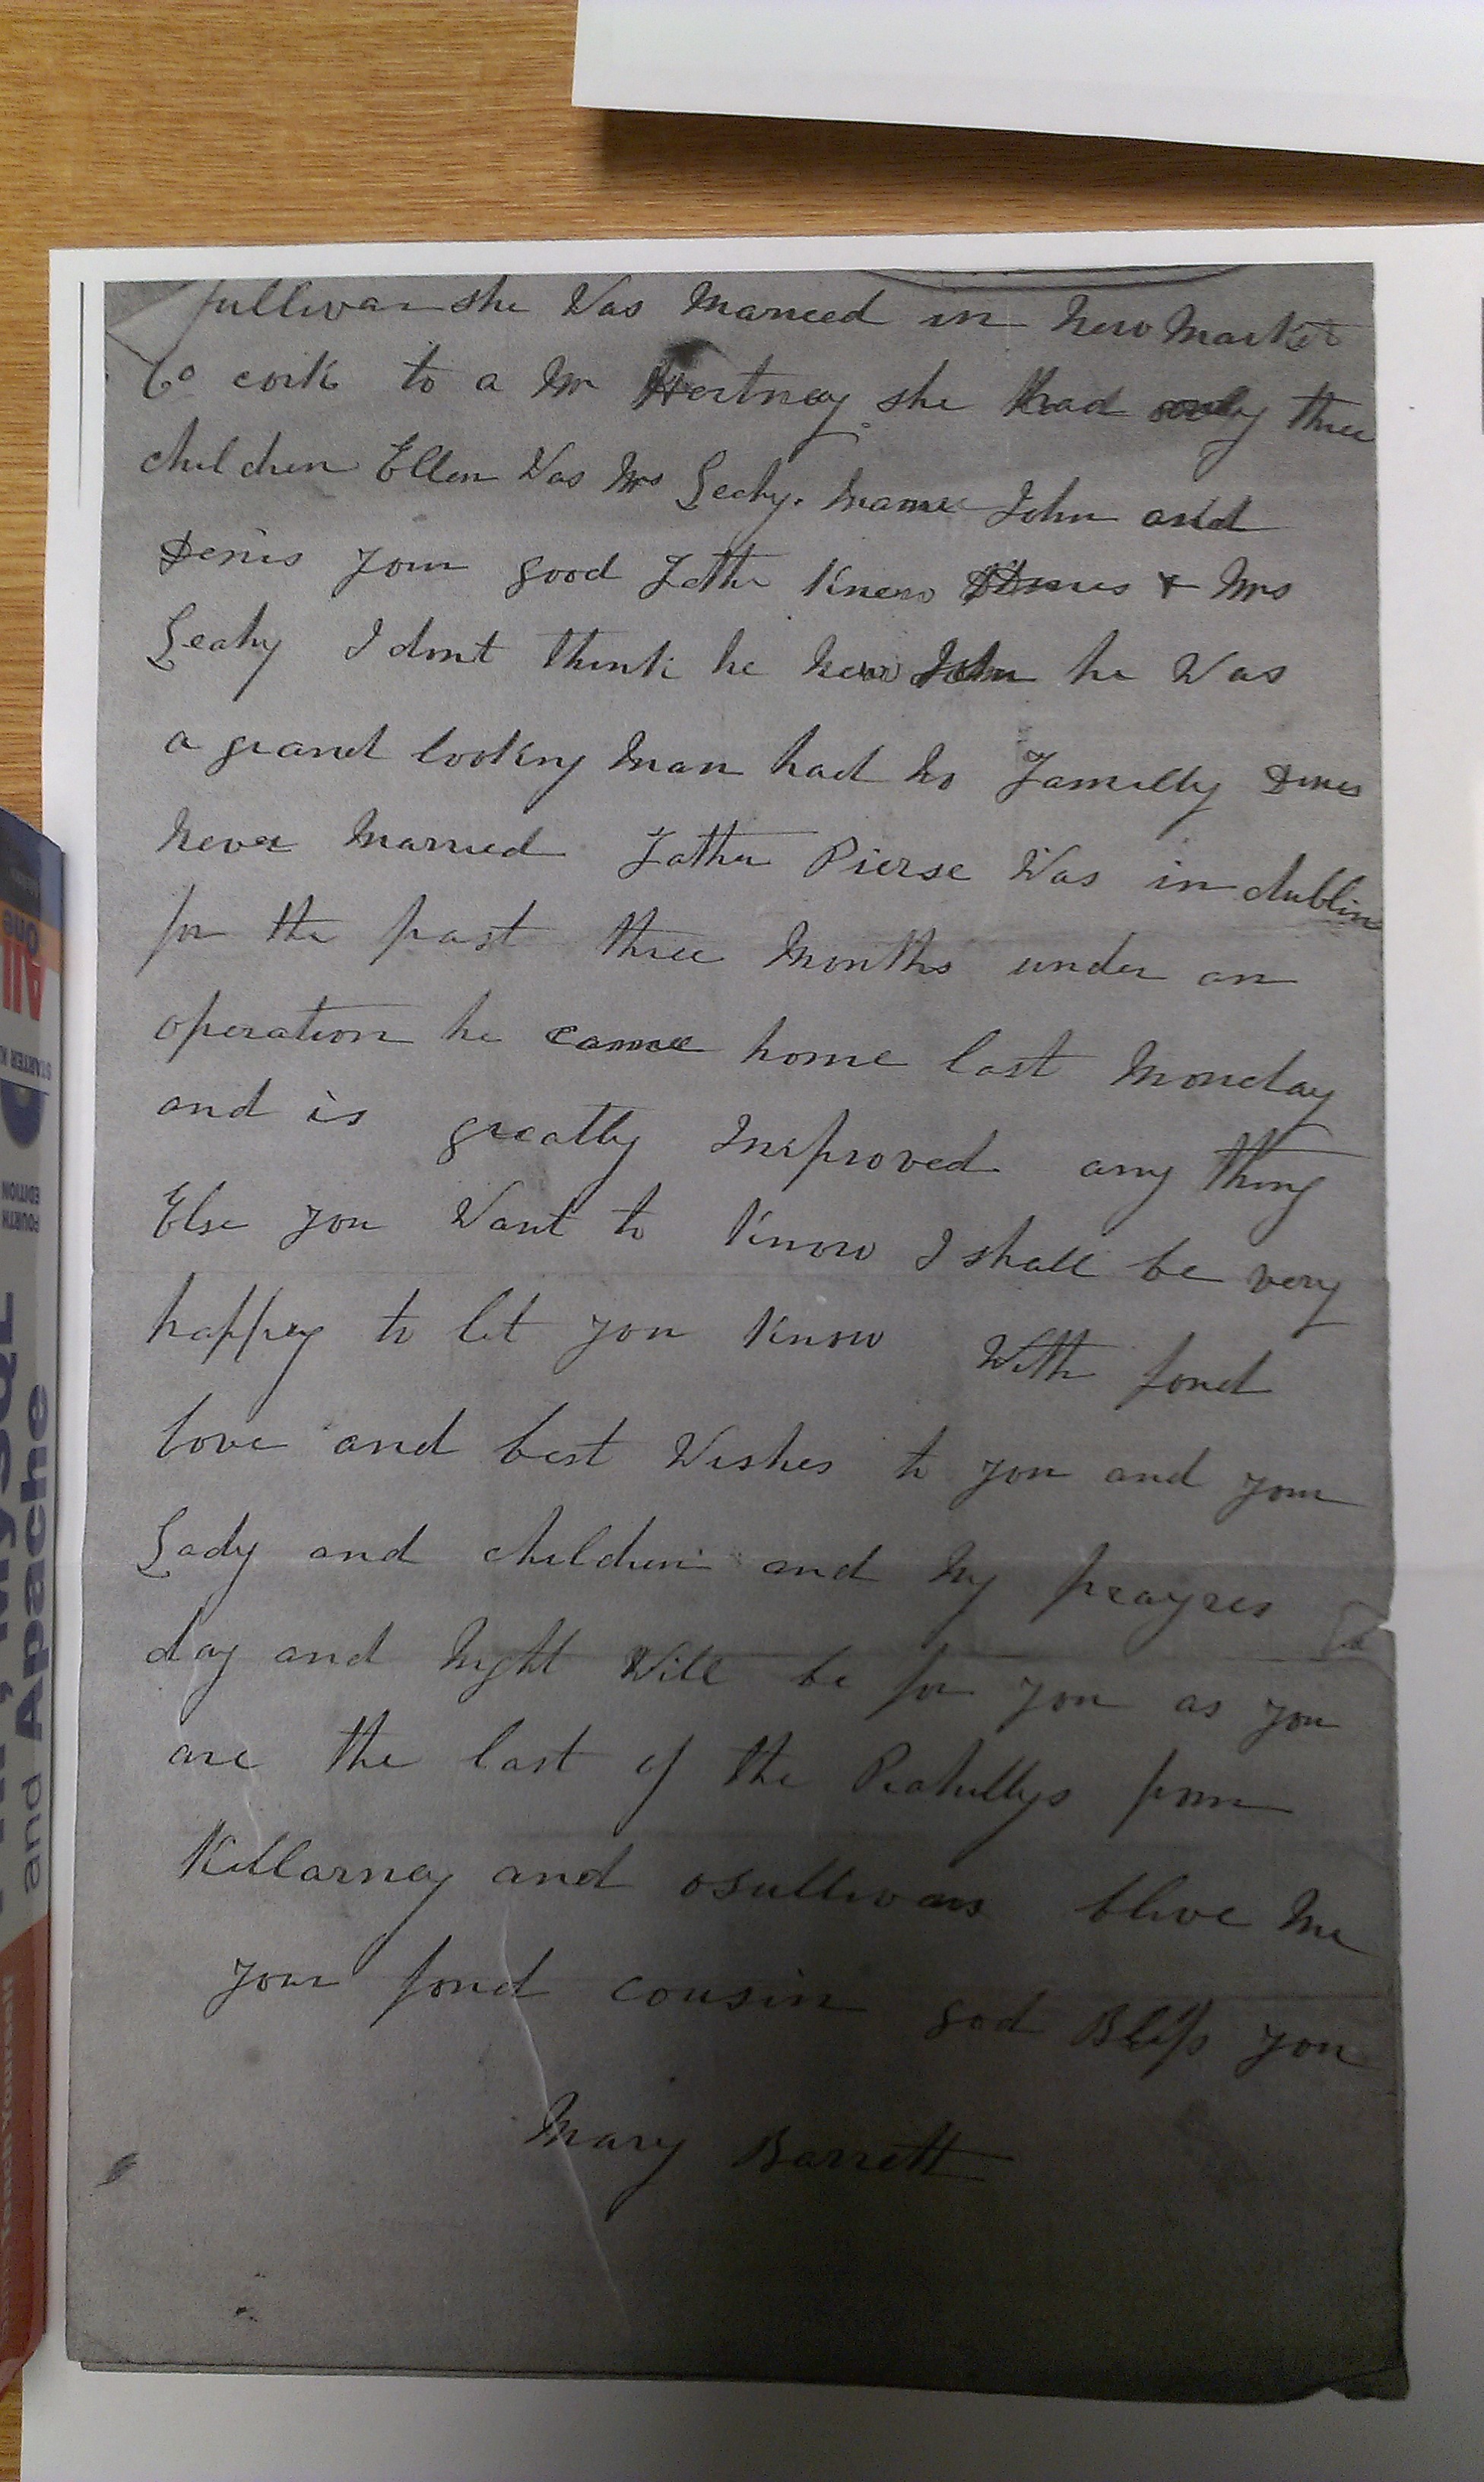 Sullivan she Was Marreed in New Market
Co cork to a Mr Hartney she had only three
children Ellen Was Mrs Leahy. Name John and
Denis your good Father Knew Denis & Mrs
Leahy I dont think he new John he Was
a grand looking Man had no Familly Denis
Never Married Father Pierse Was in dublin
for the past three Months under an
operation he came home last Monday
and is greatly Improved any thing
Else you Want to Know I shall be very
happy to let you Know With fond
love and best Wishes to you and your
Lady and children and My prayres
day and Night Will be for you as you
are the last of the Rahillys from
Killarney and osullivans blive Me
your fond cousin god Bless you
Mary Barrett
All
one
STARTER K
FOURTH
EDITION
MySQL
and Apache
Teach Yourself